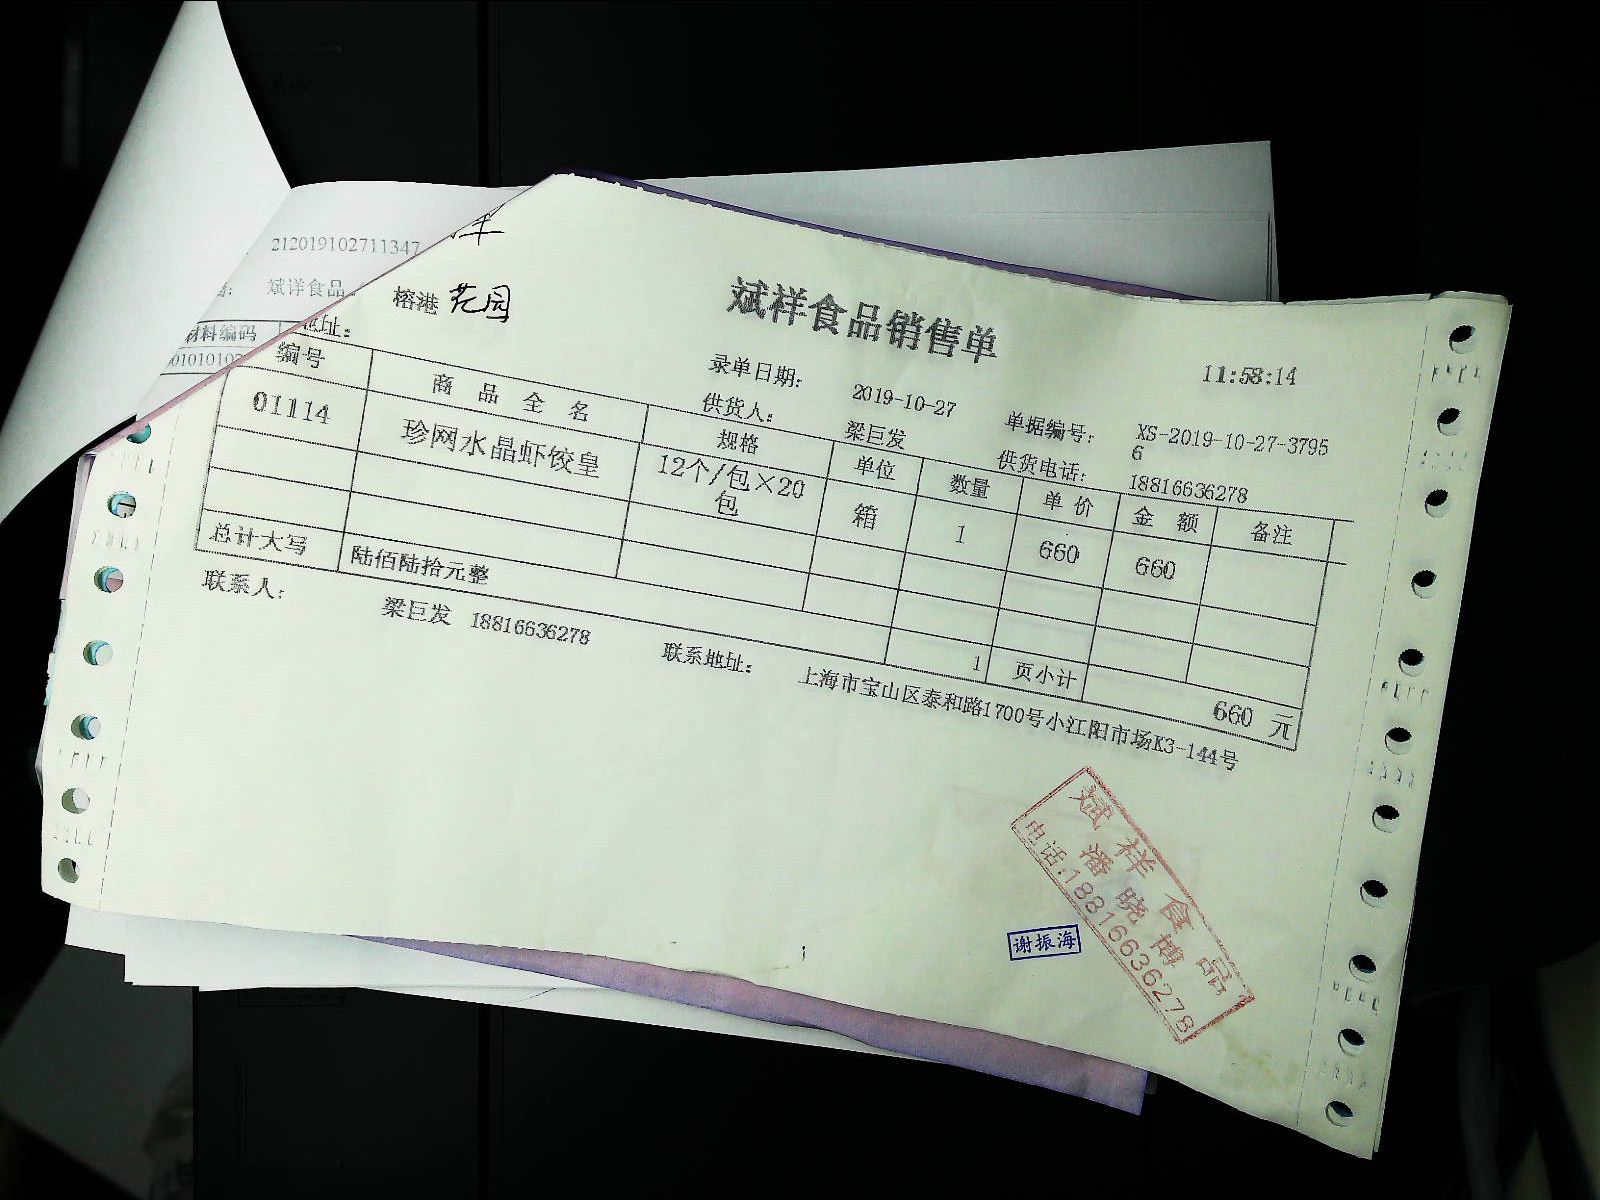 212019102711347
斌详食品
材料编码
斌祥食品销售单
榕港 花园
录单日期: 2019-10-27
11:58:14
地址:
供货人: 梁巨发
单据编号: XS-2019-10-27-3795
6
供货电话: 18816636278
编号 商品全名 规格 单位 数量 单价 金额 备注
01114 珍网水晶虾饺皇 12个/包×20
包 箱 1 660 660
总计大写 陆佰陆拾元整 1 页小计 660 元
联系人: 梁巨发 18816636278 联系地址: 上海市宝山区泰和路1700号小江阳市场K3-144号
斌祥食品
潘晓博
电话:18816636278
谢振海